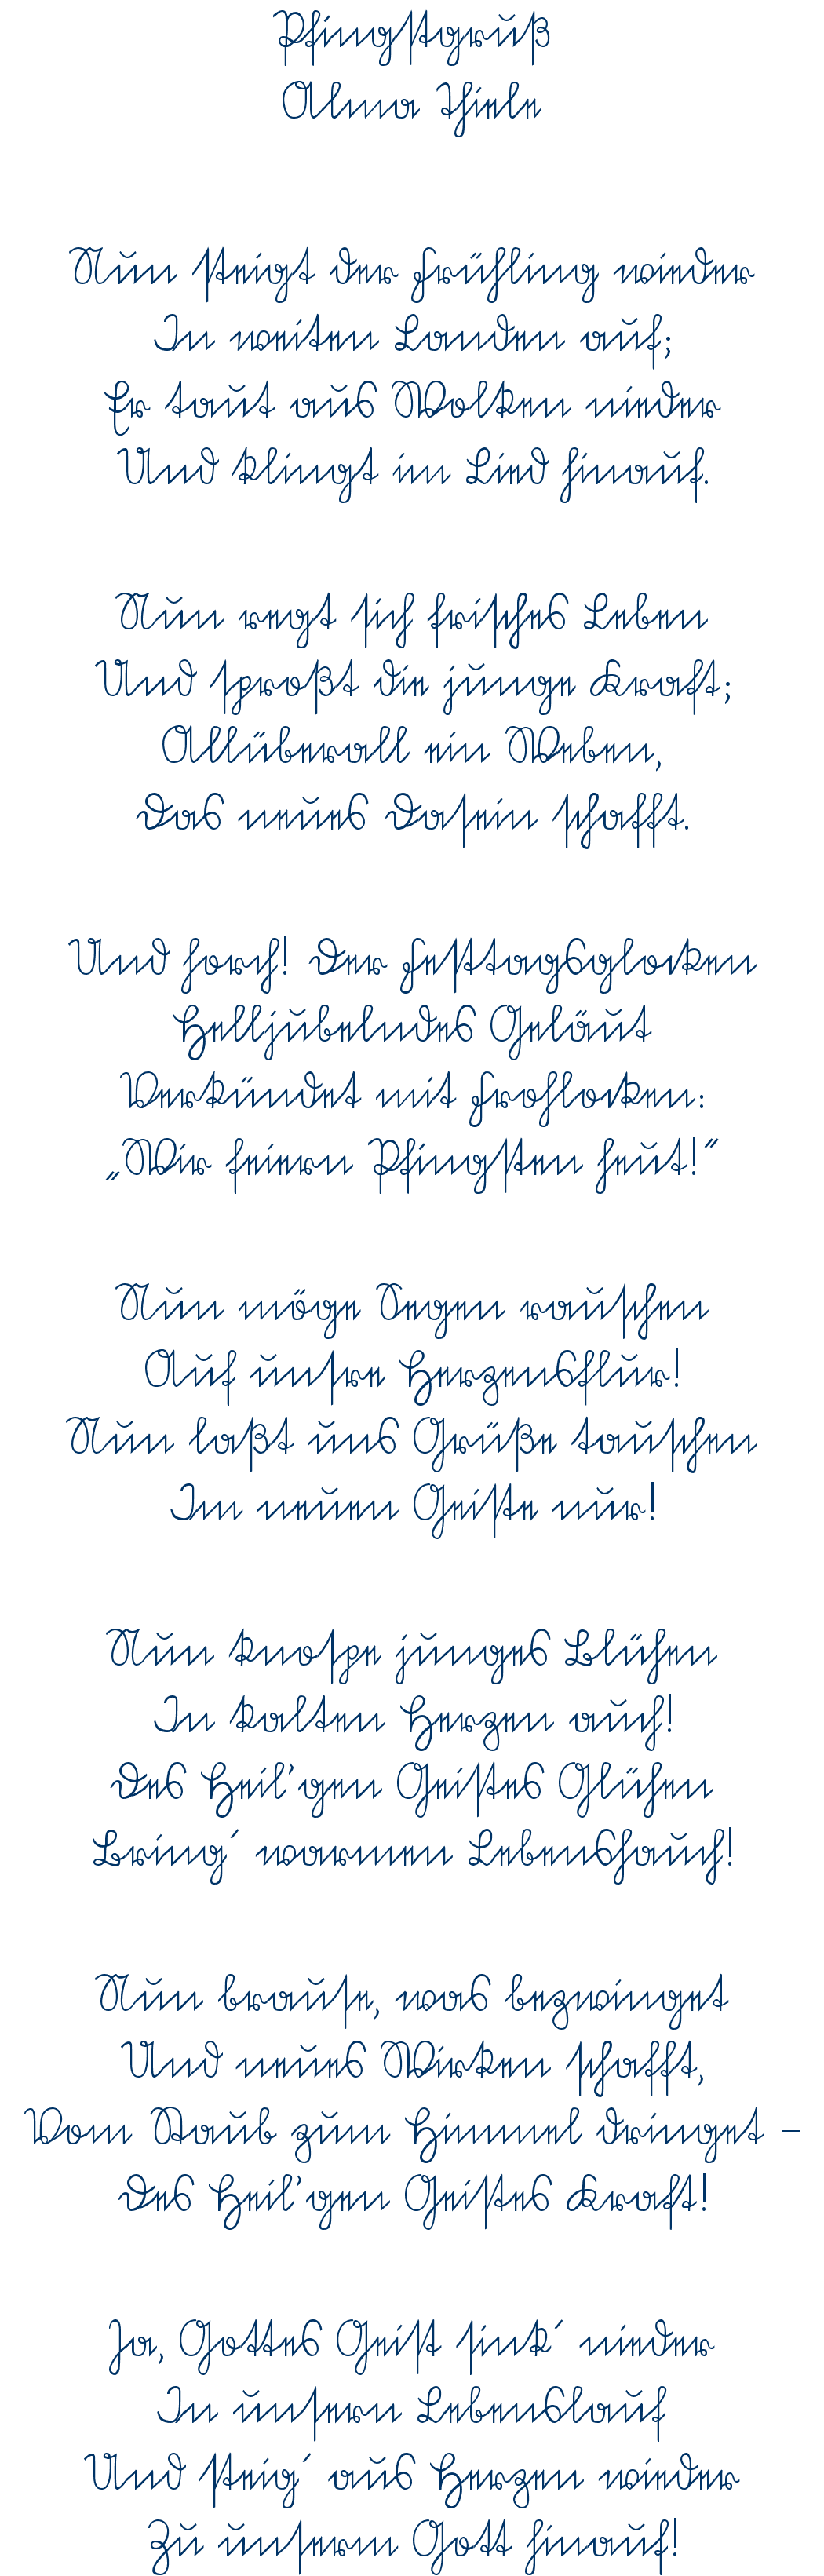 Pfingstgruß
Alma Thiele
Nun steigt der Frühling wieder
In weiten Landen auf;
Er taut aus Wolken nieder
Und klingt im Lied hinauf.
Nun regt sich frisches Leben
Und sproßt die junge Kraft;
Allüberall ein Weben,
Das neues Dasein schafft.
Und horch! Der Festtagsglocken
Helljubelndes Geläut
Verkündet mit Frohlocken:
„Wir feiern Pfingsten heut!“
Nun möge Segen rauschen
Auf unsre Herzensflur!
Nun laßt uns Grüße tauschen
Im neuen Geiste nur!
Nun knospe junges Blühen
In kalten Herzen auch!
Des Heil'gen Geistes Glühen
Bring´ warmen Lebenshauch!
Nun brause, was bezwinget
Und neues Wirken schafft,
Vom Staub zum Himmel dringet –
Des Heil'gen Geistes Kraft!
Ja, Gottes Geist sink´ nieder
In unsern Lebenslauf
Und steig´ aus Herzen wieder
Zu unserm Gott hinauf!